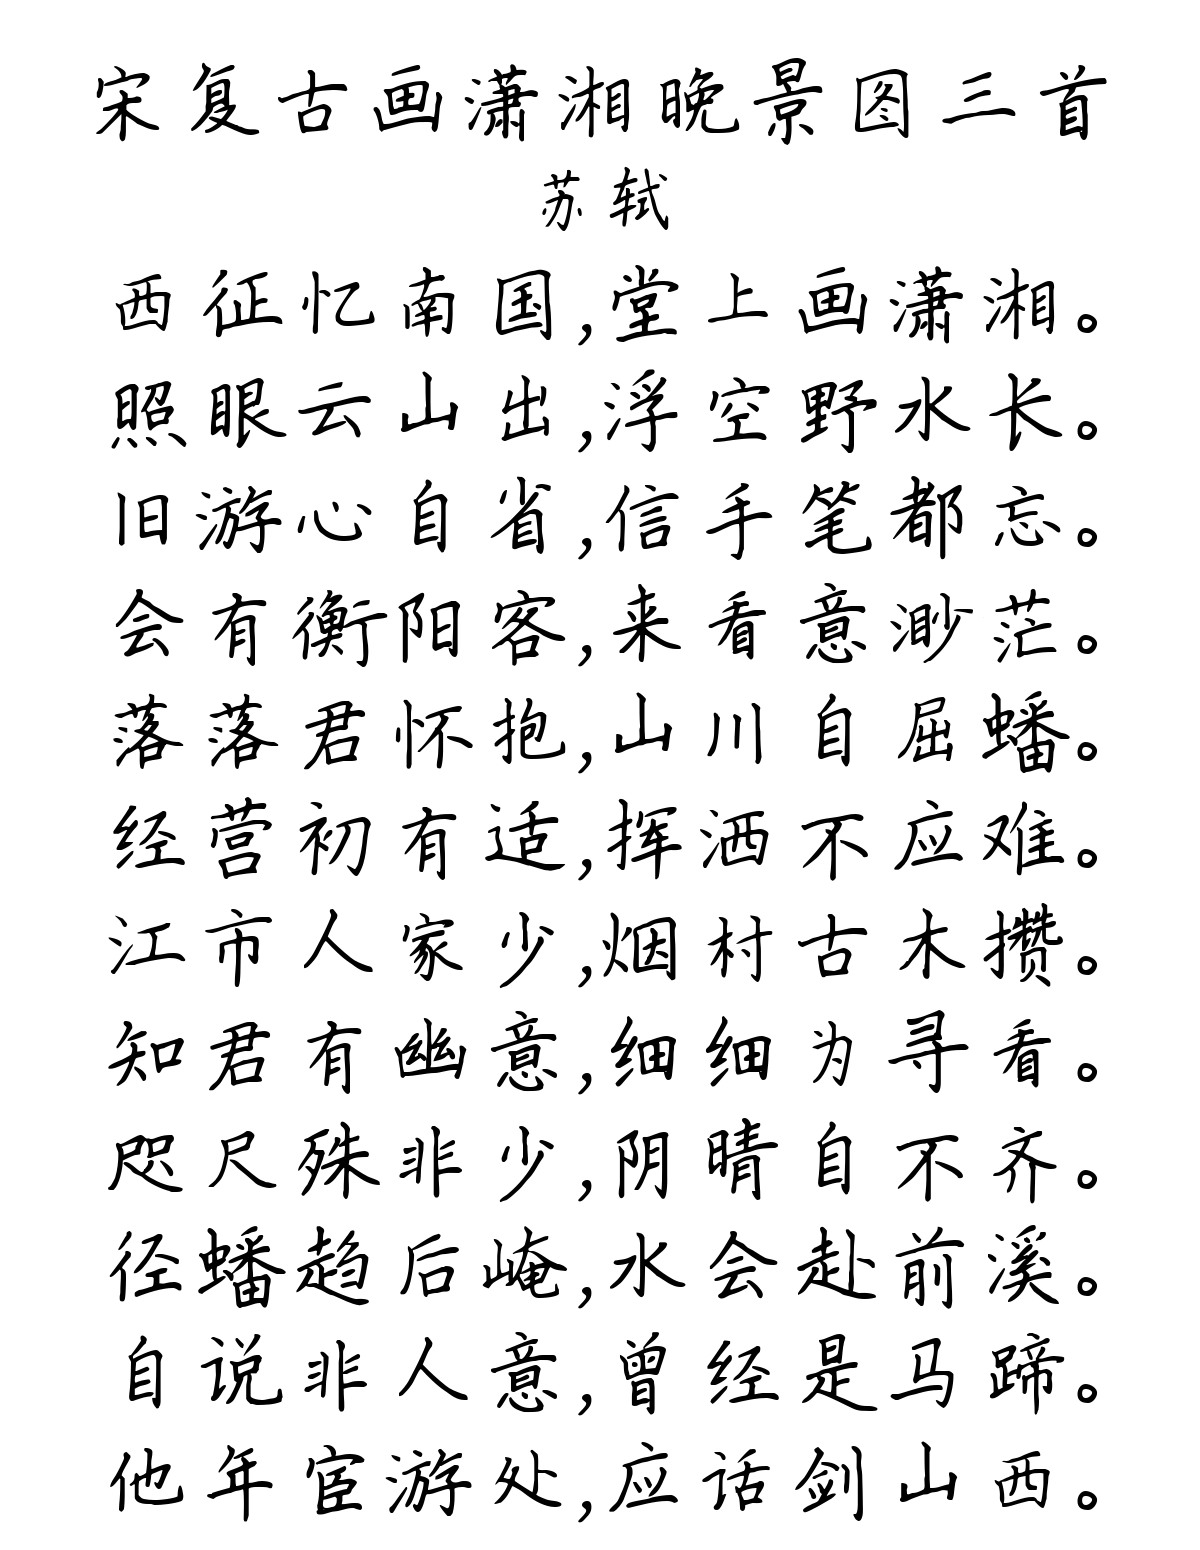 宋复古画潇湘晚景图三首
苏轼
西征忆南国,堂上画潇湘。
照眼云山出,浮空野水长。
旧游心自省,信手笔都忘。
会有衡阳客,来看意渺茫。
落落君怀抱,山川自屈蟠。
经营初有适,挥洒不应难。
江市人家少,烟村古木攒。
知君有幽意,细细为寻看。
咫尺殊非少,阴晴自不齐。
径蟠趋后崦,水会赴前溪。
自说非人意,曾经是马蹄。
他年宦游处,应话剑山西。